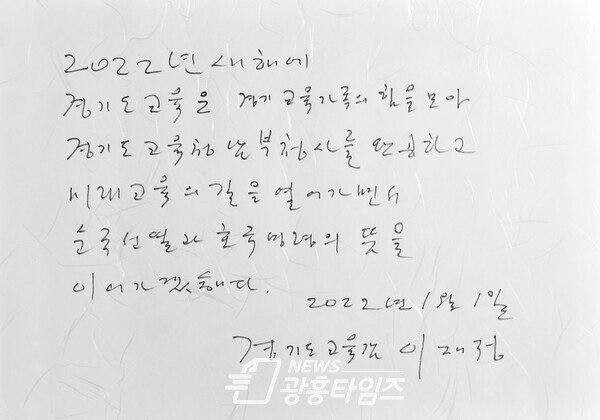 2022년 새해에
경기도교육은 경기교육가족의 힘을 모아
경기도교육청 남부청사를 완공하고
미래교육의 길을 열어가면서
순국선열과 호국영령의 뜻을
이어가겠습니다.
2022년 1월 1일
경기도교육감 이재정
NEWS
광흥타임즈